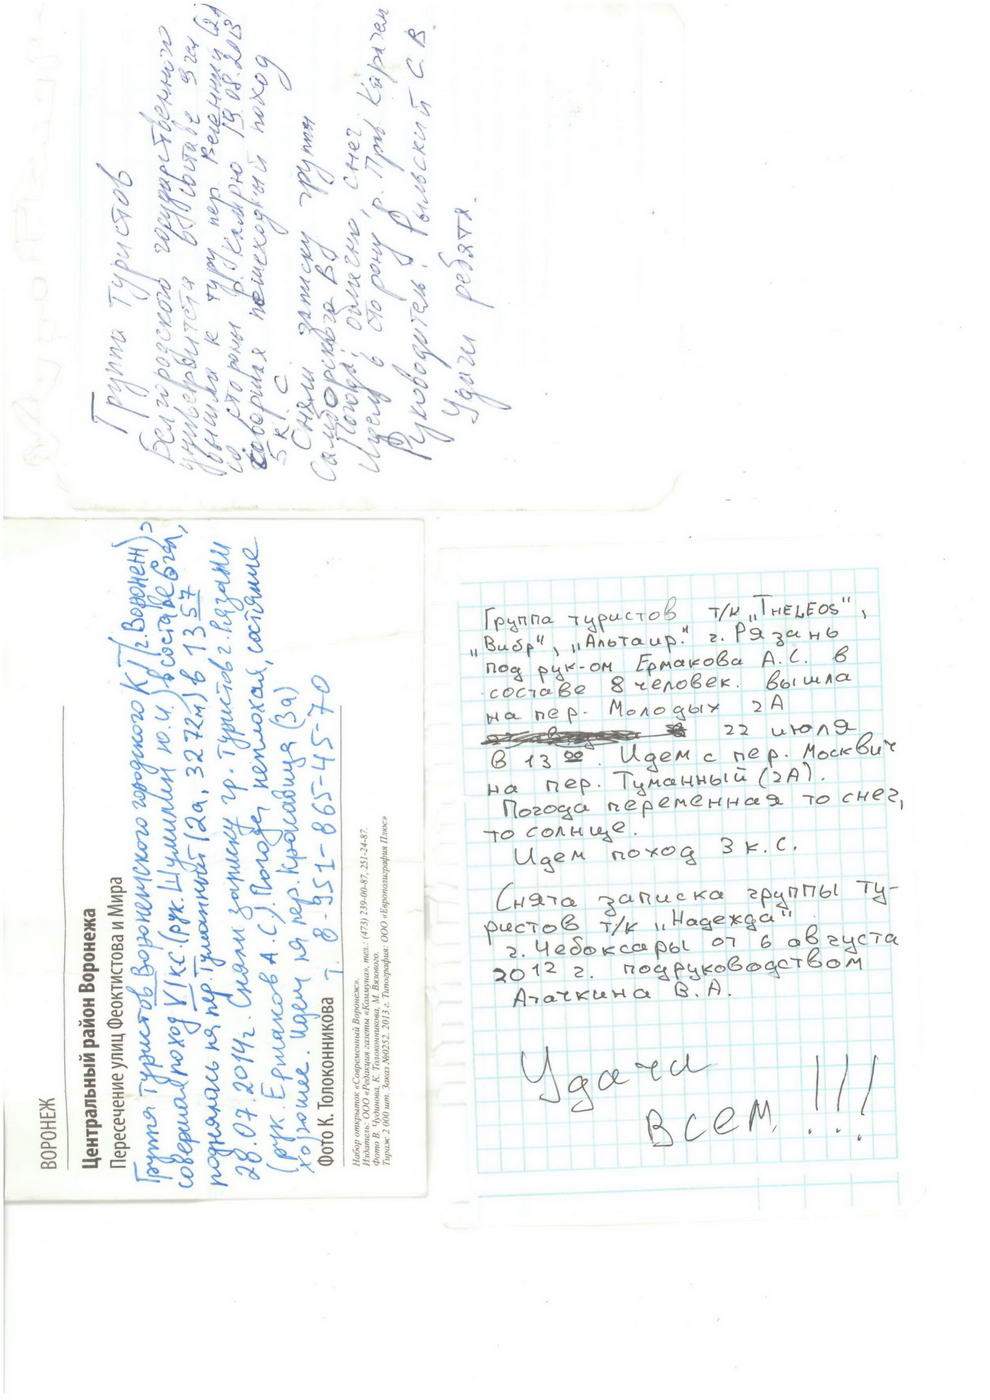 Группа туристов
Белгородского государственного
университета в составе 9 чел
вышла к туру пер
со стороны р. 19.08.2013
совершая пешеходный поход
5 к.с.
Сняли записку группы
Самборского ВУ
Погода: облачно, снег
Идем в сторону р. Прав. Карагем
Руководитель: Рыльский С.В.
Удачи ребята.
ВОРОНЕЖ
Центральный район Воронежа
Пересечение улиц Феоктистова и Мира
Группа туристов Воронежского городского КТ (г. Воронеж),
совершая поход VI КС (рук. Шумилин Ю.И.) в составе 6 чел,
поднялась на пер. Туманный (2а, 3272м) в 13 57
28.07.2014г. Сняли записку гр. туристов г. Рязани
(рук. Ермаков А.С.) Погода неплохая, состояние
хорошее. Идем на пер. Красавица (3а)
Фото К. Толоконникова т. 8-951-865-45-70
Набор открыток «Современный Воронеж».
Издатель: ООО «Редакция газеты «Коммуна», тел.: (473) 239-00-87, 251-24-87.
Фото В. Чудинова, К. Толоконникова, М. Вязового.
Тираж 2 000 шт. Заказ №0252. 2013 г. Типография: ООО «Европолиграфия Плюс»
Группа туристов т/к „THELEOS",
„Вибр", „Альтаир." г. Рязань
под рук-ом Ермакова А.С. в
составе 8 человек. вышла
на пер. Молодых 2А
22 июля
в 13 00. Идем с пер. Москвич
на пер. Туманный (2А).
Погода переменная то снег,
то солнце.
Идем поход 3 к.с.
Снята записка группы ту-
ристов т/к „Надежда"
г. Чебоксары от 6 августа
2012 г. подруководством
Агачкина В.А.
Удачи
всем!!!